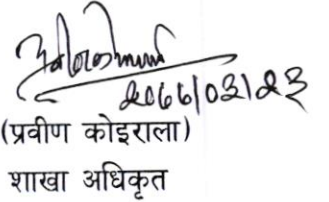 २०७७/०३/२३
(प्रवीण कोइराला)
शाखा अधिकृत